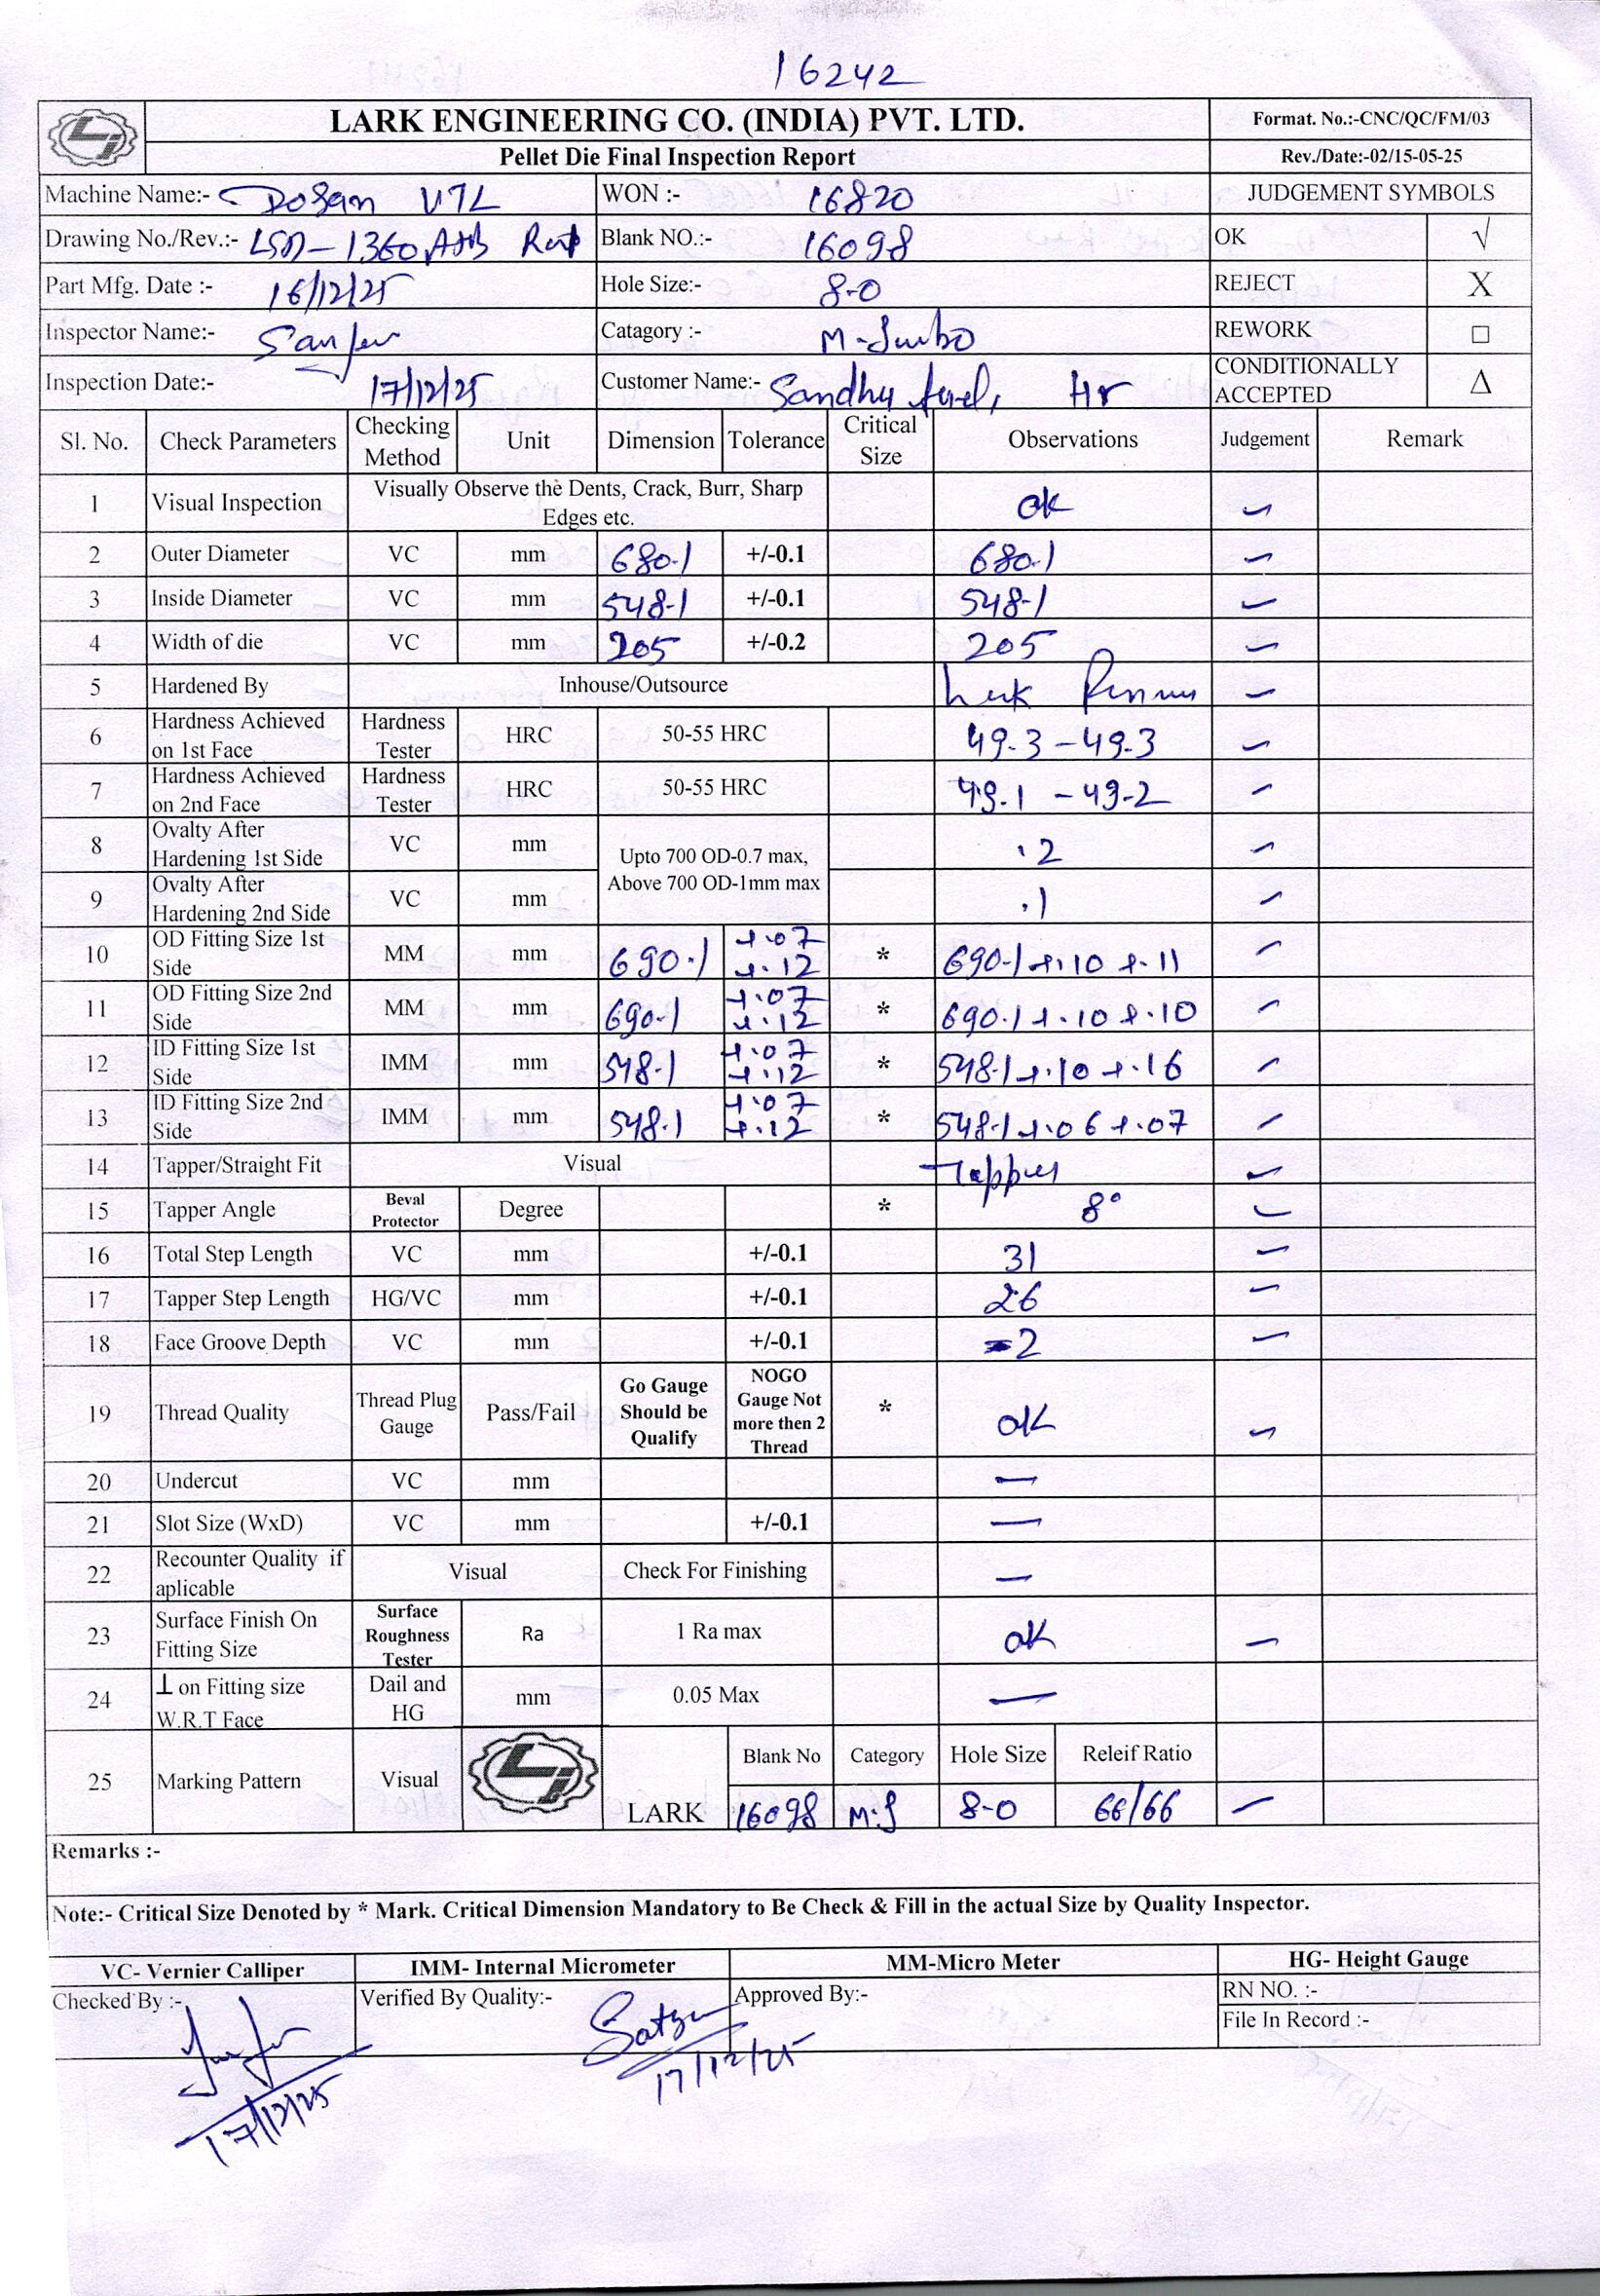 16242
LARK ENGINEERING CO. (INDIA) PVT. LTD.
Format. No.:-CNC/QC/FM/03
Pellet Die Final Inspection Report
Rev./Date:-02/15-05-25
Machine Name:- Dosan VTL WON :- 16820 JUDGEMENT SYMBOLS
Drawing No./Rev.:- Blank NO.:- 16098 OK √
Part Mfg. Date :- 16/12/25 Hole Size:- 8-0 REJECT X
Inspector Name:- Catagory :- M-Jumbo REWORK □
Inspection Date:- 17/12/25 Customer Name:- Sandhu Hr CONDITIONALLY ACCEPTED Δ
Sl. No. Check Parameters Checking Method Unit Dimension Tolerance Critical Size Observations Judgement Remark
1 Visual Inspection Visually Observe the Dents, Crack, Burr, Sharp Edges etc. ok
2 Outer Diameter VC mm 680.1 +/-0.1 680.1
3 Inside Diameter VC mm 548-1 +/-0.1 548-1
4 Width of die VC mm 205 +/-0.2 205
5 Hardened By Inhouse/Outsource
6 Hardness Achieved on 1st Face Hardness Tester HRC 50-55 HRC 49.3 - 49.3
7 Hardness Achieved on 2nd Face Hardness Tester HRC 50-55 HRC 49.1 - 49-2
8 Ovalty After Hardening 1st Side VC mm Upto 700 OD-0.7 max, Above 700 OD-1mm max .2
9 Ovalty After Hardening 2nd Side VC mm .1
10 OD Fitting Size 1st Side MM mm 690.1 +.07 +.12 * 690.1 +.10 +.11
11 OD Fitting Size 2nd Side MM mm 690.1 +.07 +.12 * 690.1 +.10 +.10
12 ID Fitting Size 1st Side IMM mm 548.1 +.07 +.12 * 548.1 +.10 +.16
13 ID Fitting Size 2nd Side IMM mm 548.1 +.07 +.12 * 548.1 +.06 +.07
14 Tapper/Straight Fit Visual Tapper
15 Tapper Angle Beval Protector Degree * 8°
16 Total Step Length VC mm +/-0.1 31
17 Tapper Step Length HG/VC mm +/-0.1 26
18 Face Groove Depth VC mm +/-0.1 2
19 Thread Quality Thread Plug Gauge Pass/Fail Go Gauge Should be Qualify NOGO Gauge Not more then 2 Thread * ok
20 Undercut VC mm —
21 Slot Size (WxD) VC mm +/-0.1 —
22 Recounter Quality if aplicable Visual Check For Finishing —
23 Surface Finish On Fitting Size Surface Roughness Tester Ra 1 Ra max ok
24 ⊥ on Fitting size W.R.T Face Dail and HG mm 0.05 Max —
25 Marking Pattern Visual LARK Blank No Category Hole Size Releif Ratio
16098 M.J 8-0 66/66
Remarks :-
Note:- Critical Size Denoted by * Mark. Critical Dimension Mandatory to Be Check & Fill in the actual Size by Quality Inspector.
VC- Vernier Calliper IMM- Internal Micrometer MM-Micro Meter HG- Height Gauge
Checked By :- Verified By Quality:- Approved By:- RN NO. :-
File In Record :-
17/12/25 17/12/25